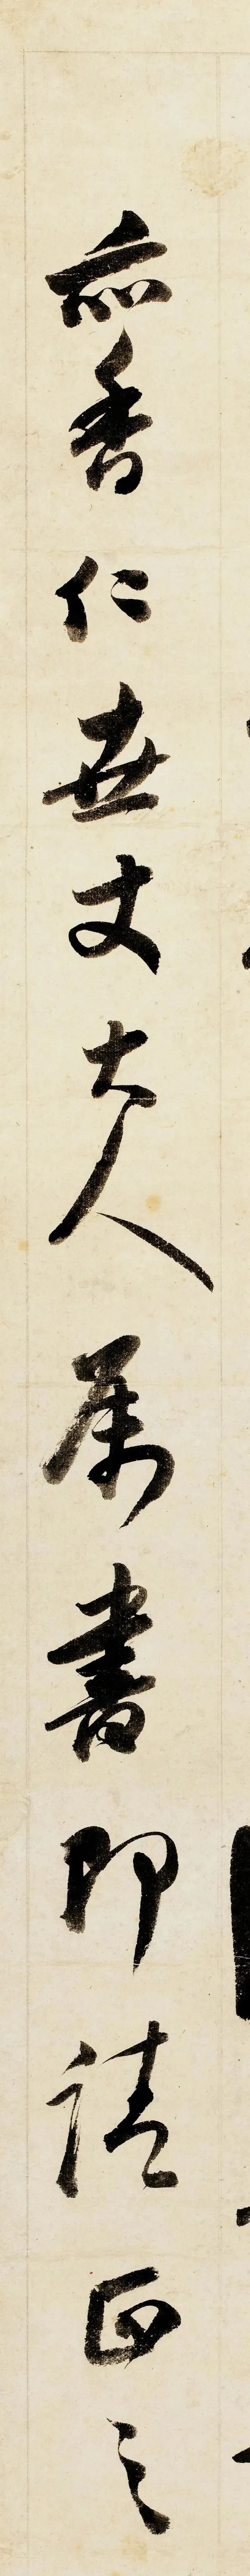 亦香仁世丈大人属書即請正之